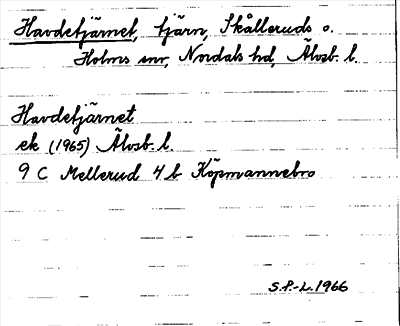 Havdetjärnet, tjärn, Skålleruds o.
Holms snr, Nordals hd, Älvsb. l.
Havdetjärnet
ek (1965) Älvsb. l.
9 C Mellerud 4 b Köpmannebro
S.P.-L. 1966